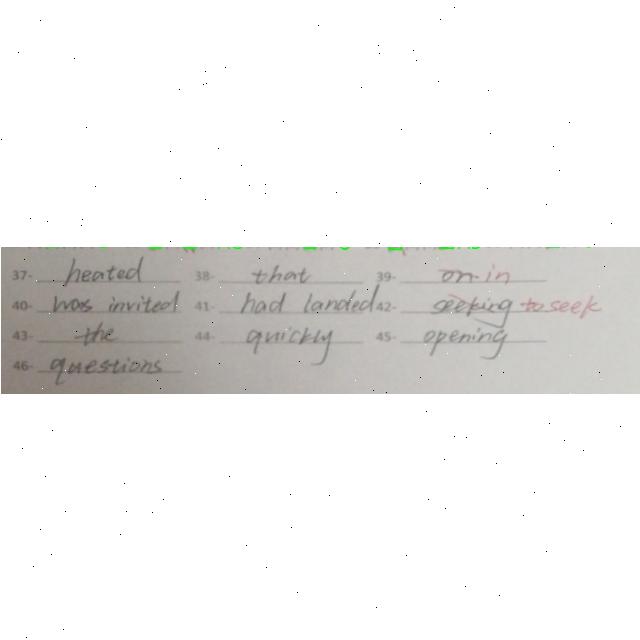 37- heated 38- that 39- on in
40- was invited 41- had landed 42- seeking to seek
43- the 44- quickly 45- opening
46- questions